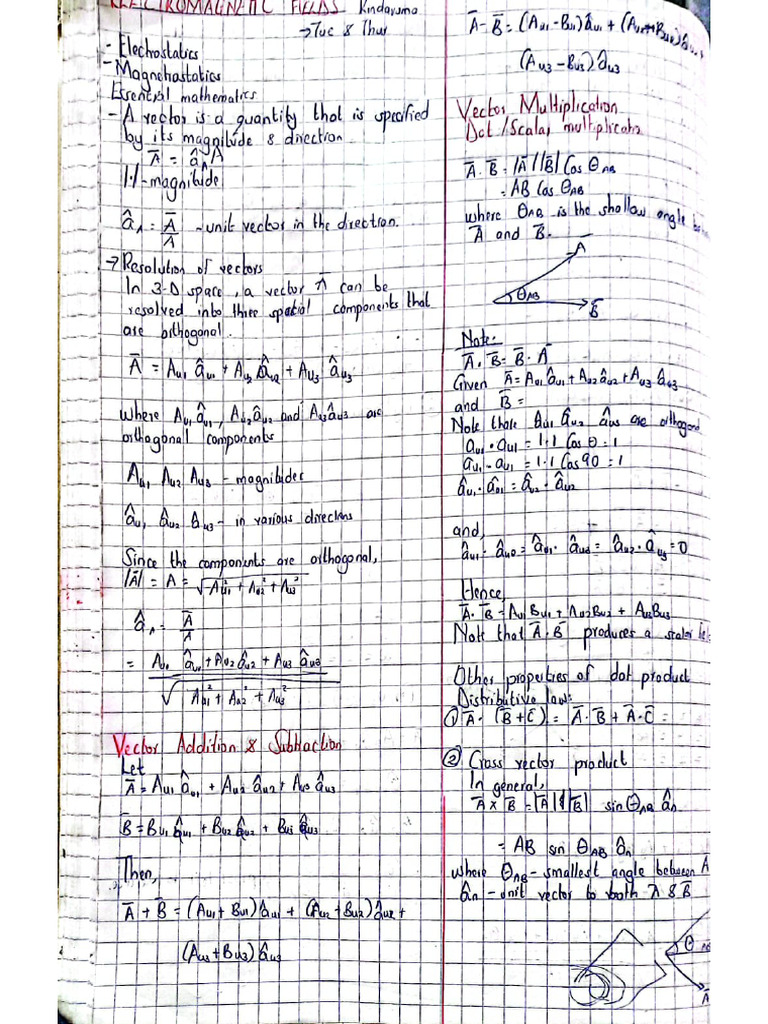 ELECTROMAGNETIC FIELDS Kindayama
→ Tue & Thur
- Electrostatics
- Magnetostatics
Essential mathematics
- A vector is a quantity that is specified
by its magnitude & direction
Ā = â_A A
|·| - magnitude
â_A = Ā/A - unit vector in the direction.
→ Resolution of vectors
In 3-D space, a vector Ā can be
resolved into three spatial components that
are orthogonal.
Ā = A_u1 â_u1 + A_u2 â_u2 + A_u3 â_u3
where A_u1 â_u1, A_u2 â_u2 and A_u3 â_u3 are
orthogonal components
A_u1 A_u2 A_u3 - magnitudes
â_u1 â_u2 â_u3 - in various directions
Since the components are orthogonal,
|Ā| = A = √(A_u1² + A_u2² + A_u3²)
â_A = Ā/A
= (A_u1 â_u1 + A_u2 â_u2 + A_u3 â_u3) / √(A_u1² + A_u2² + A_u3²)
Vector Addition & Subtraction
Let
Ā = A_u1 â_u1 + A_u2 â_u2 + A_u3 â_u3
B̄ = B_u1 â_u1 + B_u2 â_u2 + B_u3 â_u3
Then,
Ā + B̄ = (A_u1 + B_u1) â_u1 + (A_u2 + B_u2) â_u2 +
(A_u3 + B_u3) â_u3
Ā - B̄ = (A_u1 - B_u1) â_u1 + (A_u2 B_u2) â_u2 +
(A_u3 - B_u3) â_u3
Vector Multiplication
Dot / Scalar multiplicatn
Ā · B̄ = |Ā| |B̄| Cos θ_AB
= AB Cos θ_AB
where θ_AB is the shallow angle
Ā and B̄.
Ā
θ_AB
B̄
Note:
Ā · B̄ = B̄ · Ā
Given Ā = A_u1 â_u1 + A_u2 â_u2 + A_u3 â_u3
and B̄ =
Note that â_u1 â_u2 â_u3 are orthogonal
a_u1 · a_u1 = 1·1 Cos θ = 1
a_u1 · a_u1 = 1·1 Cos 90 = 1
â_u1 · â_u1 = â_u2 · â_u2
and,
â_u1 · â_u2 = â_u1 · â_u3 = â_u2 · â_u3 = 0
Hence,
Ā · B̄ = A_u1 B_u1 + A_u2 B_u2 + A_u3 B_u3
Note that Ā · B̄ produces a scalar
Other properties of dot product
Distributive law:
① Ā · (B̄ + C̄) = Ā · B̄ + Ā · C̄ =
② Cross vector product
In general,
Ā × B̄ = |Ā| |B̄| sin θ_AB â_n
= AB sin θ_AB â_n
where θ_AB - smallest angle between Ā
â_n - unit vector to both Ā & B̄
θ_AB
Ā